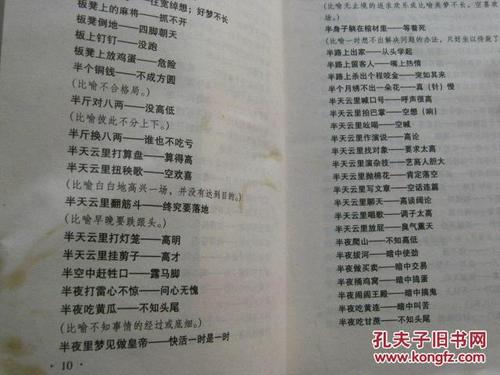 往宽绰想；好梦不长
板凳上的麻将——抓不开
板凳倒地——四脚朝天
板上钉钉——没跑
板凳上放鸡蛋——危险
半个铜钱——不成方圆
(比喻不合格局。)
半斤对八两——没高低
(比喻彼此不分上下。)
半斤换八两——谁也不吃亏
半天云里打算盘——算得高
半天云里扭秧歌——空欢喜
(比喻白白地高兴一场，并没有达到目的。)
半天云里翻筋斗——终究要落地
(比喻早晚要跌跟头。)
半天云里打灯笼——高明
半天云里挂剪子——高才
半空中赶牲口——露马脚
半夜打雷心不惊——问心无愧
半夜吃黄瓜——不知头尾
(比喻不知事情的经过或底细。)
半夜里梦见做皇帝——快活一时是一时
· 10 ·
喜。)
半身子躺在棺材里——等着死
(比喻一时想不出解决问题的办法，只好坐以待毙了
半路上出家——从头学起
半路上留客人——嘴上热情
半路上杀出个程咬金——突如其来
半个月绣不出一朵花——真（针）慢
半天云里喊口号——呼声很高
半天云里拍巴掌——空想（响）
半天云里吆喝——空喊
半天云里作演说——高论
半天云里找对象——要求太高
半天云里演杂技——艺高人胆大
半天云里抛棉花——肯定落空
半天云里写文章——空话连篇
半天云里聊天——高谈阔论
半天云里唱歌——调子太高
半天云里放屁——臭气熏天
半夜爬山——不知高低
半夜拔河——暗中使劲
半夜做买卖——暗中交易
半夜捅鸡窝——暗中捣蛋
半夜闹阎王殿——暗中搞鬼
半夜吃黄连——暗中叫苦
半夜吃甘蔗——不知头尾
孔夫子旧书网
www.kongfz.com